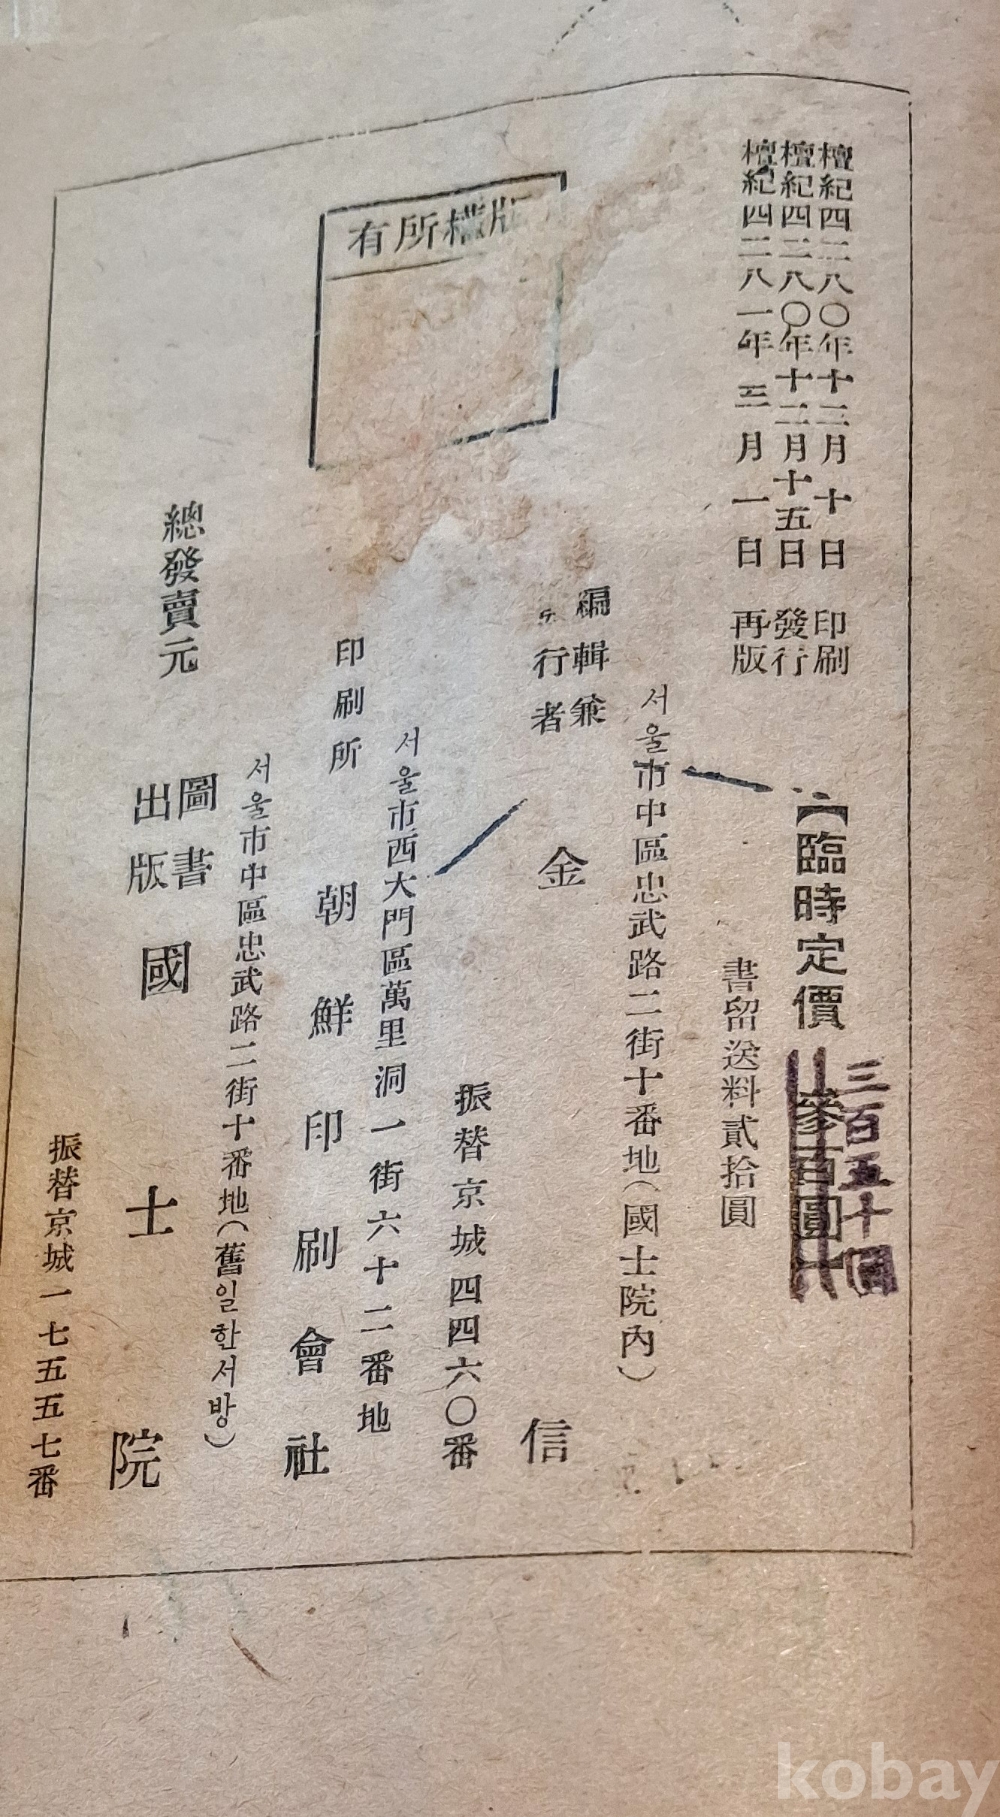 檀紀四二八〇年十二月十日 印刷
檀紀四二八〇年十二月十五日 發行
檀紀四二八一年 三月 一日 再版
三百五十圓
【臨時定價 參百圓】
書留送料貳拾圓
版權所有
서울市中區忠武路二街十番地(國士院內)
編輯兼
行者
金 信
振替京城四四六〇番
서울市西大門區萬里洞一街六十二番地
印刷所 朝鮮印刷會社
서울市中區忠武路二街十番地(舊일한서방)
總發賣元 圖書出版 國士院
振替京城一七五五七番
kobay